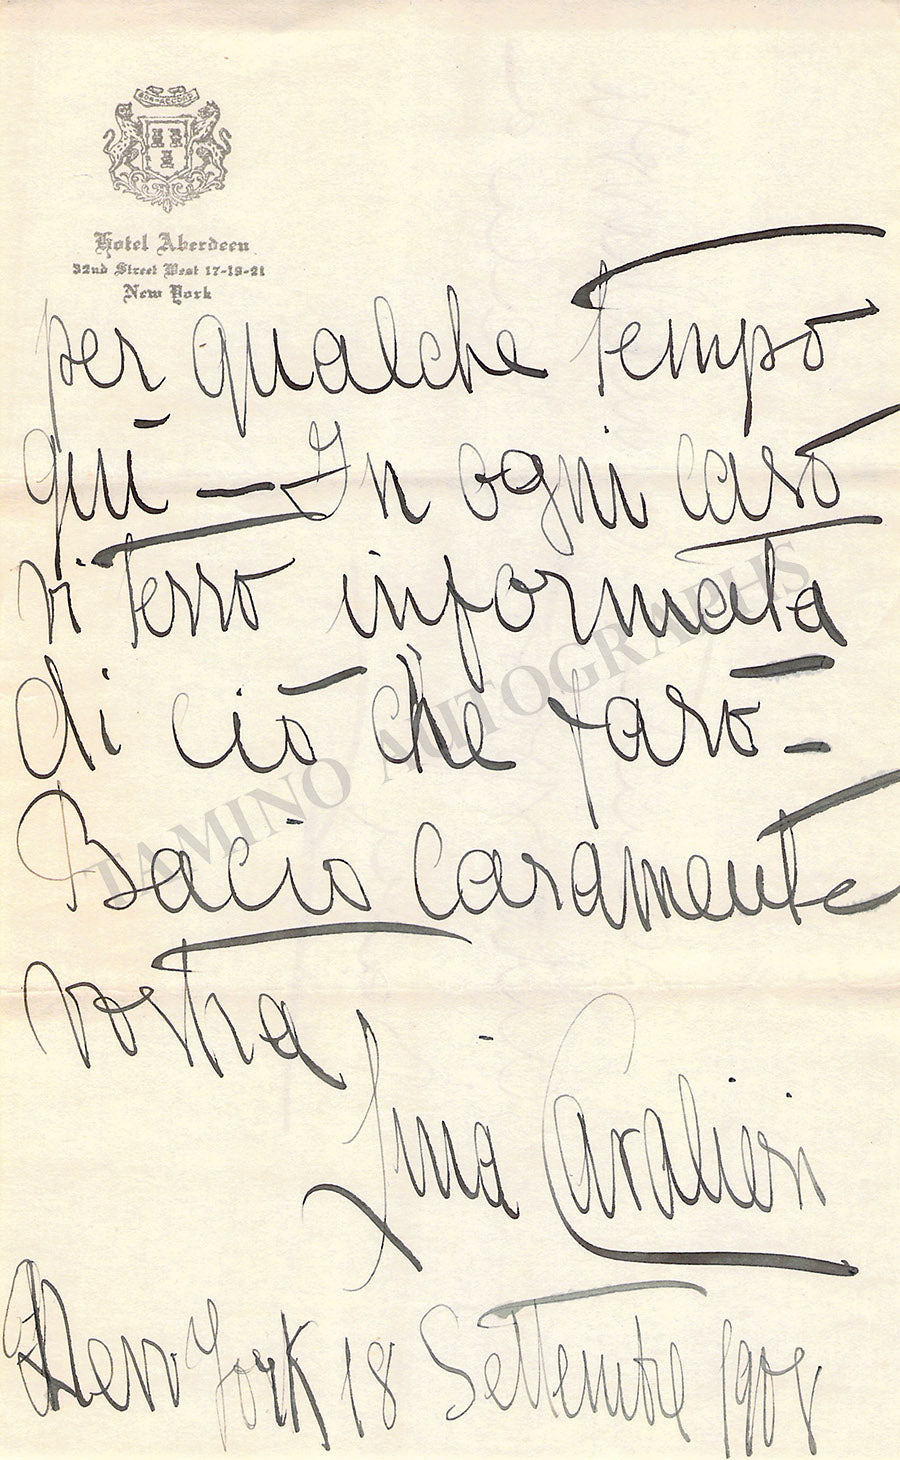 BON-ACCORD
Hotel Aberdeen
32nd Street West 17-19-21
New York
per qualche tempo
quì — In ogni caso
vi terrò informata
di ciò che farò -
Bacio caramente
vostra
Lina Cavalieri
New York 18 Settembre 1908
TAMINO AUTOGRAPHS